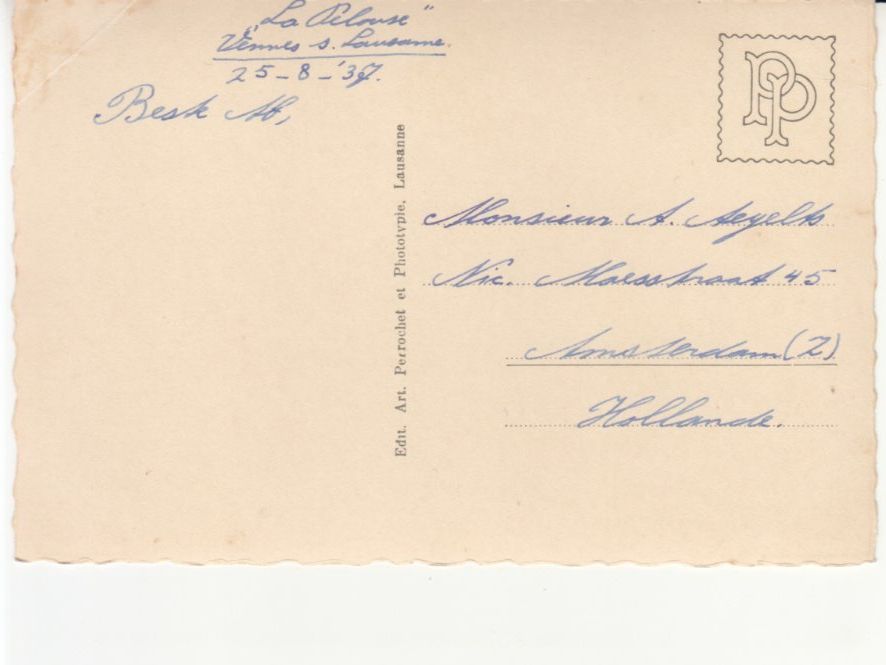 „La Pelouse"
Vennes s. Lausanne.
25-8-'37.
Beste
Edit. Art. Perrochet et Phototypie, Lausanne
PP
Monsieur A. Aegelts
Nic. Maesstraat 45
Amsterdam (Z)
Hollande.